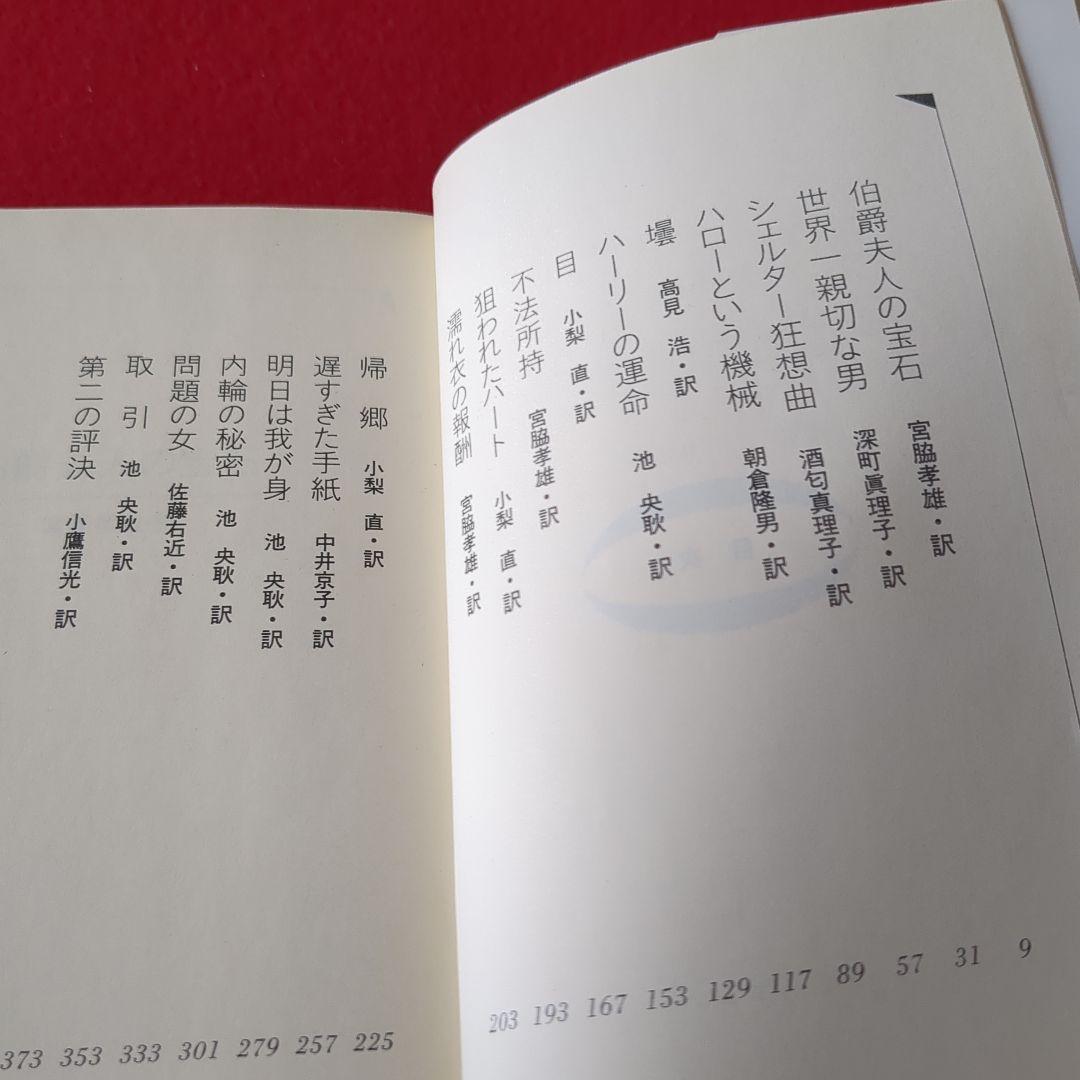 伯爵夫人の宝石 宮脇孝雄・訳 9
世界一親切な男 深町眞理子・訳 31
シェルター狂想曲 酒匂真理子・訳 57
ハローという機械 朝倉隆男・訳 89
壜 高見 浩・訳 117
ハーリーの運命 池 央耿・訳 129
目 小梨 直・訳 153
不法所持 宮脇孝雄・訳 167
狙われたハート 小梨 直・訳 193
濡れ衣の報酬 宮脇孝雄・訳 203
帰郷 小梨 直・訳 225
遅すぎた手紙 中井京子・訳 257
明日は我が身 池 央耿・訳 279
内輪の秘密 池 央耿・訳 301
問題の女 佐藤右近・訳 333
取引 池 央耿・訳 353
第二の評決 小鷹信光・訳 373